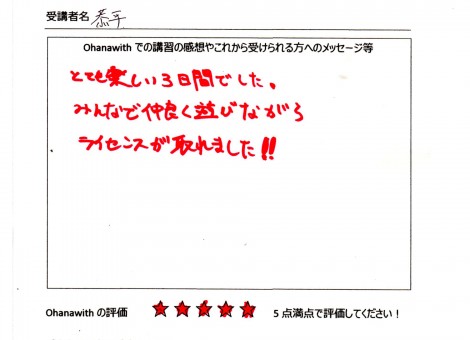 受講者名 恭平
Ohanawith での講習の感想やこれから受けられる方へのメッセージ等
とても楽しい3日間でした。
みんなで仲良く遊びながら
ライセンスが取れました!!
Ohanawith の評価 ★★★★★ 5 点満点で評価してください！